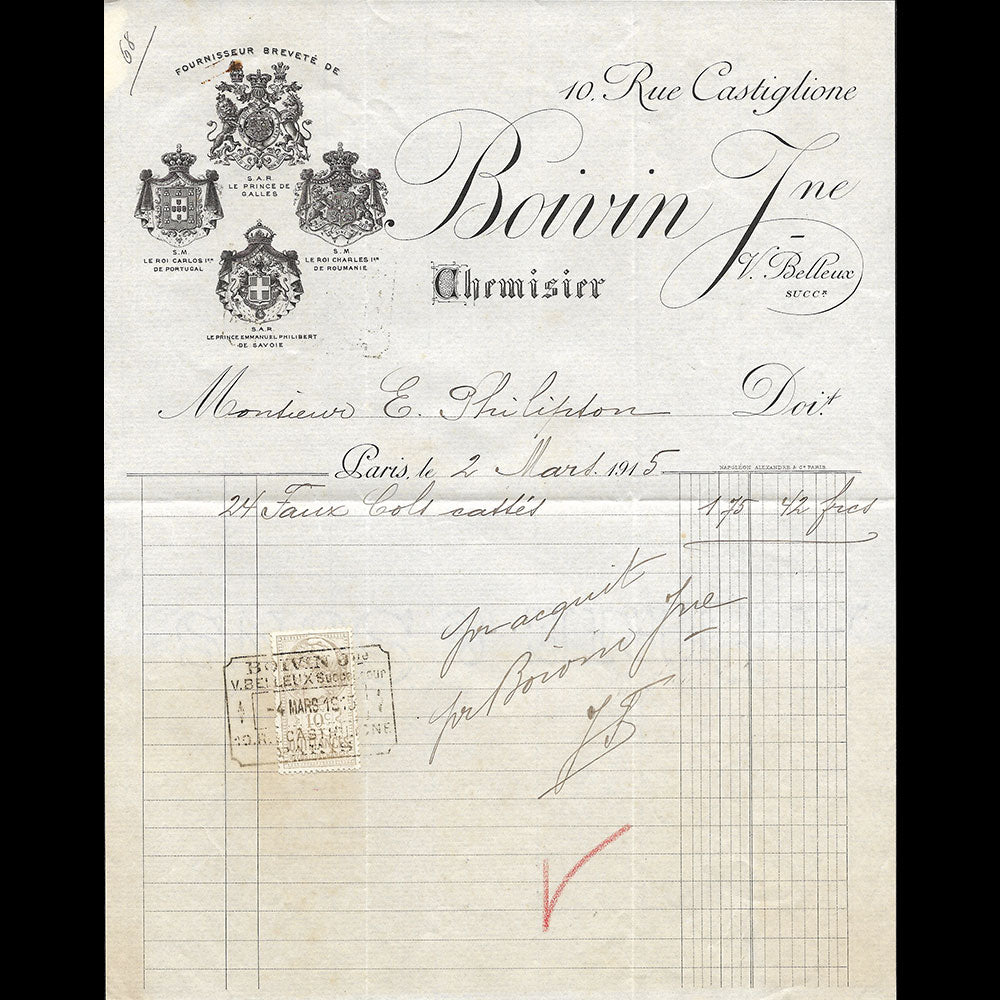 68/
FOURNISSEUR BREVETÉ DE
S.A.R.
LE PRINCE DE
GALLES
S.M.
LE ROI CARLOS Iᵉʳ
DE PORTUGAL
S.M.
LE ROI CHARLES Iᵉʳ
DE ROUMANIE
S.A.R.
LE PRINCE EMMANUEL PHILIBERT
DE SAVOIE
10, Rue Castiglione
Boivin Jne
V. Belleux
SUCCᴿ
Chemisier
Monsieur E. Philipton Doit
Paris, le 2 Mars 1915
NAPOLÉON ALEXANDRE & Cᴵᴱ PARIS
24 Faux Cols cassés 1 75 42 frcs
pr acquit
pr Boivin Jne
BOIVIN Jne
V. BELLEUX Successeur
-4 MARS 1915
10. R. CASTIGLIONE